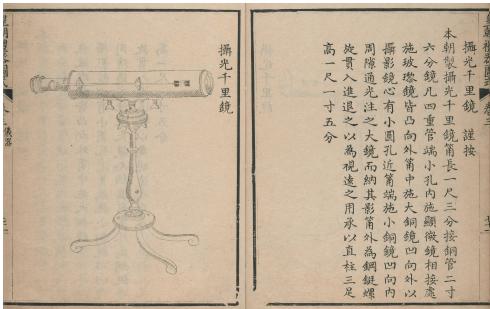 攝光千里鏡　謹按
本朝製攝光千里鏡筩長一尺三分接銅管二寸
六分鏡凡四重管端小孔內施顯微鏡相接處
施玻瓈鏡皆凸向外筩中施大銅鏡凹向外以
攝影鏡心有小圓孔近筩端施小銅鏡凹向內
周隙通光注之大鏡而納其影筩外為鋼鋌螺
旋貫入進退之以為視遠之用承以直柱三足
高一尺一寸五分
攝光千里鏡
皇朝禮器圖式
儀器